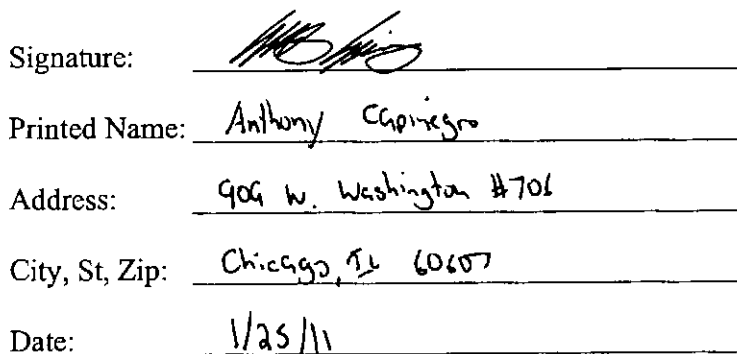 Signature:
Printed Name: Anthony Capinegro
Address: 909 W. Washington #706
City, St, Zip: Chicago, IL 60607
Date: 1/25/11